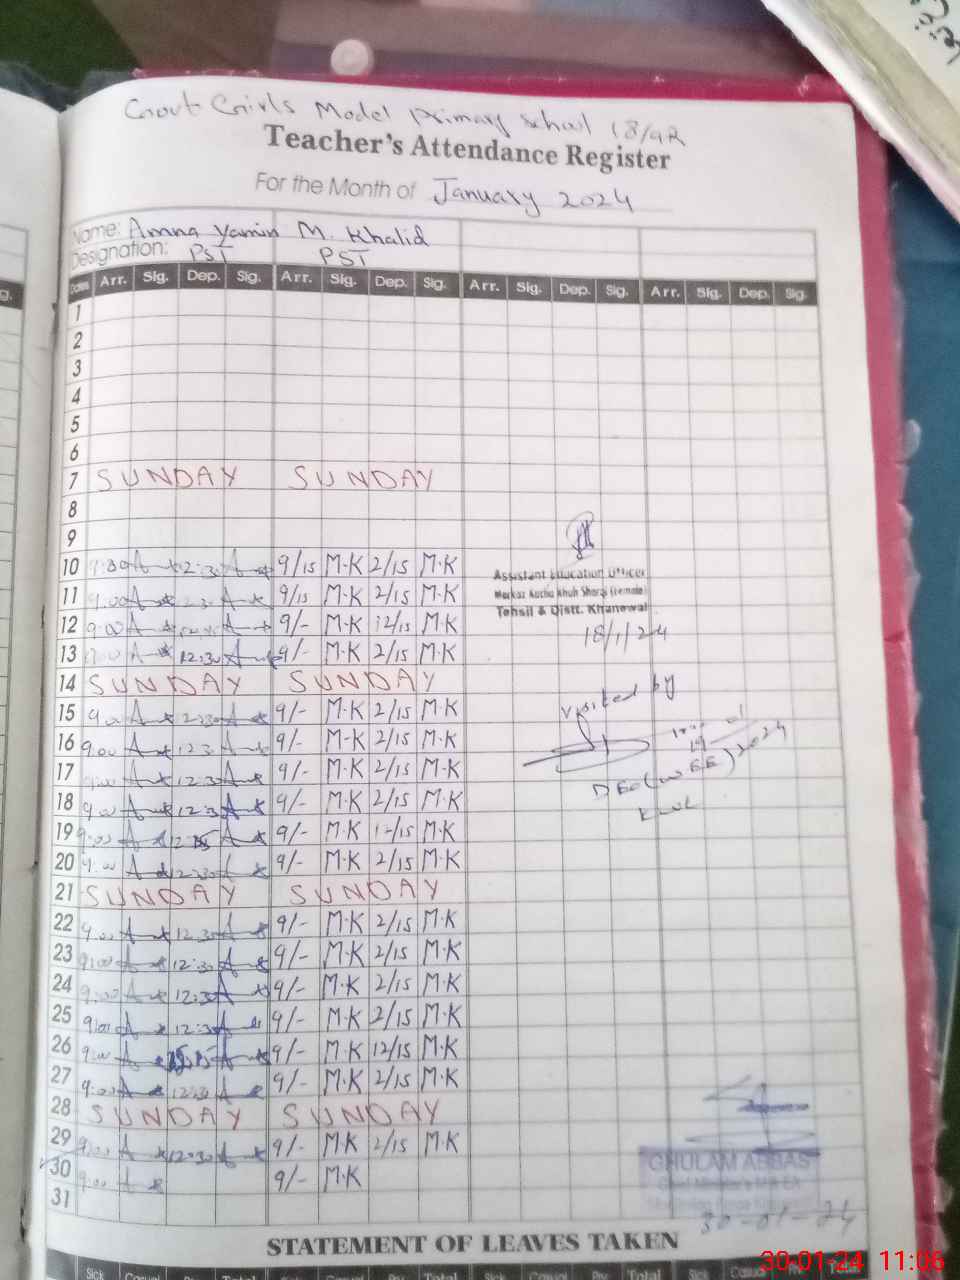 Govt Girls Model Primary School 18/9R
Teacher's Attendance Register
For the Month of January 2024
Name: Amna Yamin M. Khalid
Designation: PST PST
Dates Arr. Sig. Dep. Sig. Arr. Sig. Dep. Sig. Arr. Sig. Dep. Sig. Arr. Sig. Dep. Sig.
1
2
3
4
5
6
7 SUNDAY SUNDAY
8
9
10 12:30 9/15 M.K 2/15 M.K
11 9:00 9/15 M.K 2/15 M.K
12 9:00 9/- M.K 12/15 M.K
13 9:00 12:30 9/- M.K 2/15 M.K
14 SUNDAY SUNDAY
15 9:00 12:30 9/- M.K 2/15 M.K
16 9:00 9/- M.K 2/15 M.K
17 9:00 12:30 9/- M.K 2/15 M.K
18 9:00 12:30 9/- M.K 2/15 M.K
19 9:00 9/- M.K 12/15 M.K
20 9:00 12:30 9/- M.K 2/15 M.K
21 SUNDAY SUNDAY
22 9:00 12:30 9/- M.K 2/15 M.K
23 9:00 12:30 9/- M.K 2/15 M.K
24 9:00 12:30 9/- M.K 2/15 M.K
25 9:00 12:30 9/- M.K 2/15 M.K
26 9:00 9/- M.K 12/15 M.K
27 9:00 12:30 9/- M.K 2/15 M.K
28 SUNDAY SUNDAY
29 9:00 12:30 9/- M.K 2/15 M.K
30 9:00 9/- M.K
31
Assistant Education Officer
Markaz Kacha Khuh Sharqi (Female)
Tehsil & Distt. Khanewal
18/1/24
visited by
19 01 2024
DEO (W.EE)
KWL
GHULAM ABBAS
30-01-24
STATEMENT OF LEAVES TAKEN
Sick Casual Total Total Casual Total
30-01-24 11:06